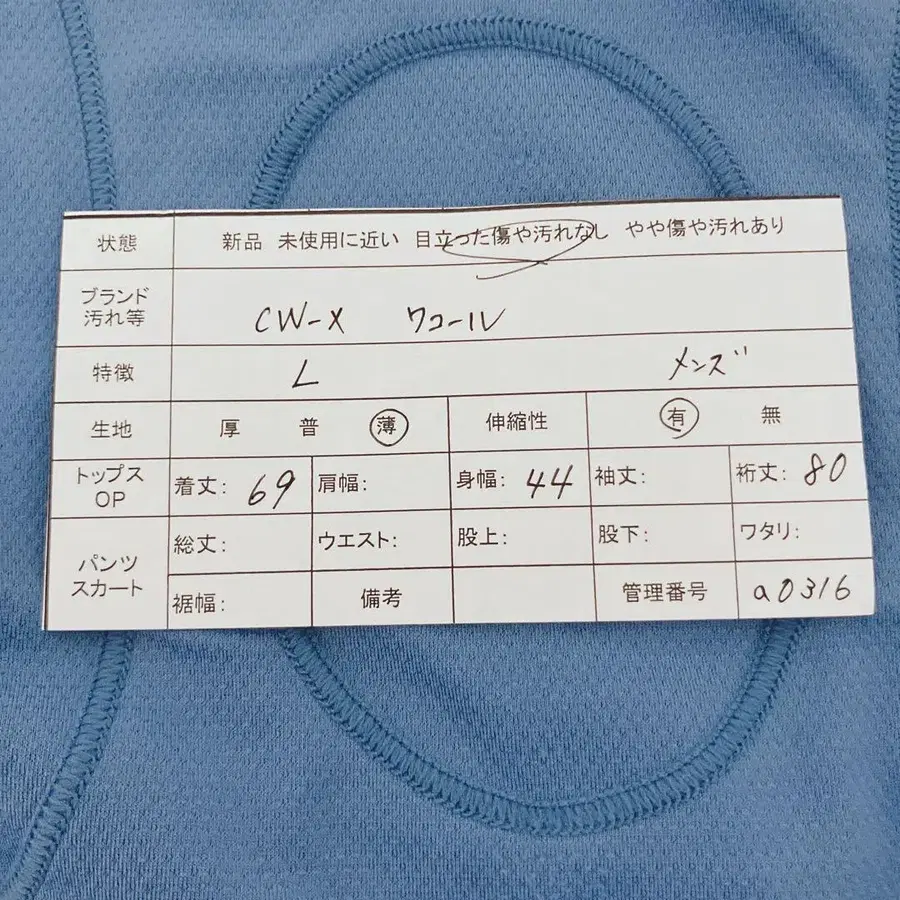 状態 新品 未使用に近い 目立った傷や汚れなし やや傷や汚れあり
ブランド
汚れ等
CW-X ワコール
特徴 L メンズ
生地 厚 普 薄 伸縮性 有 無
トップス
OP
着丈: 69 肩幅: 身幅: 44 袖丈: 裄丈: 80
パンツ
スカート
総丈: ウエスト: 股上: 股下: ワタリ:
裾幅: 備考 管理番号 a0316